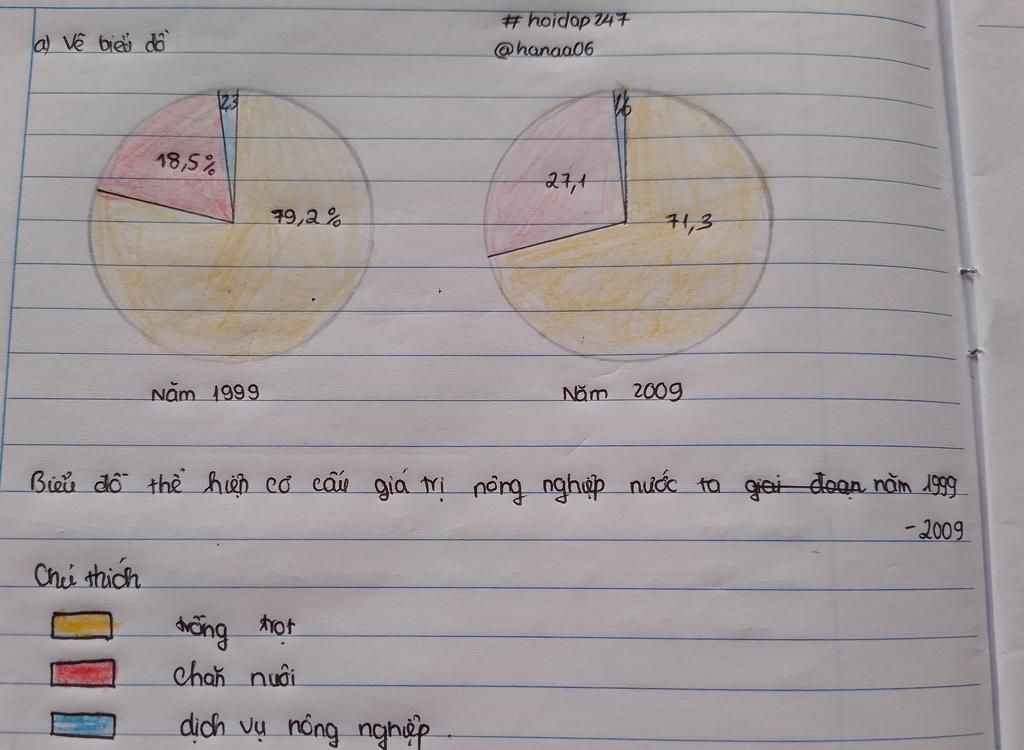 # hoidap247
a) Vẽ biểu đồ
@hanaa06
2,3
18,5%
79,2%
1,6
27,1
71,3
Năm 1999
Năm 2009
Biểu đồ thể hiện cơ cấu giá trị nông nghiệp nước ta giai đoạn năm 1999
- 2009
Chú thích
trồng trọt
chăn nuôi
dịch vụ nông nghiệp.